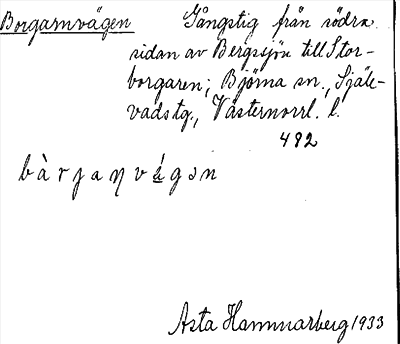 Borgarnvägen Gångstig från södra
sidan av Bergsjön till Stor-
borgaren; Björna sn., Själe-
vads tg., Västernorrl. l.
482
bàrjaŋvǽgən
Asta Hammarberg 1933